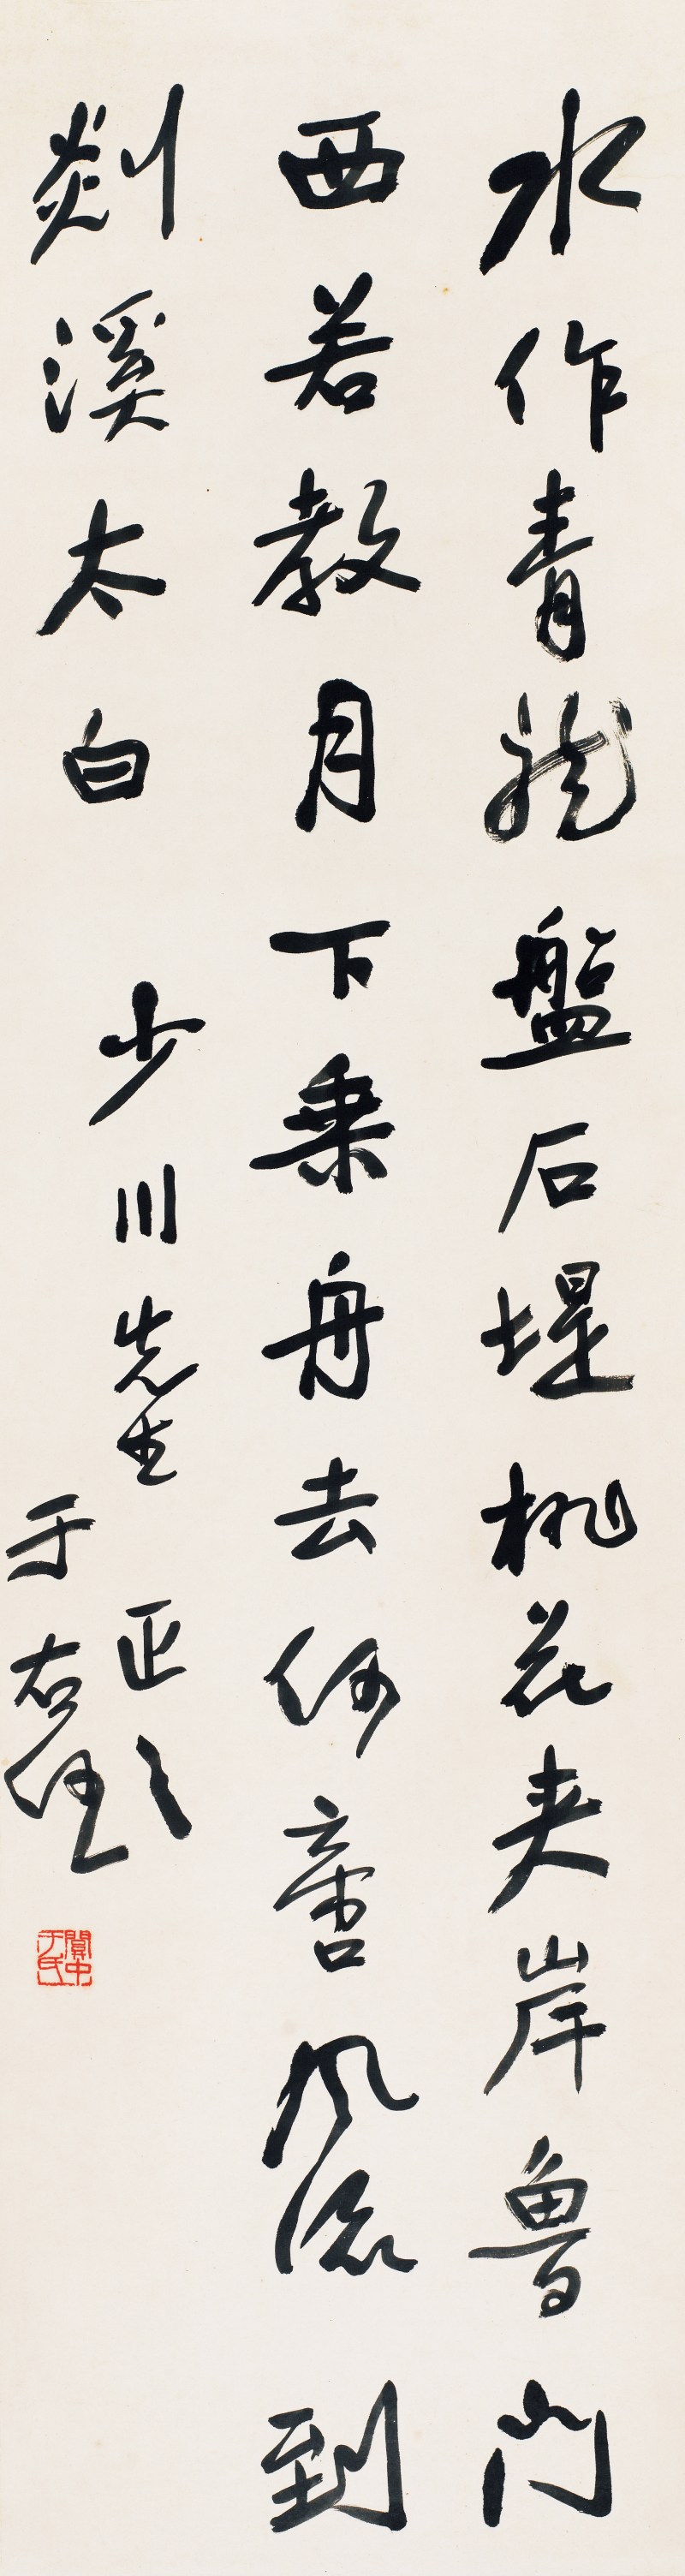 水作青龍盤石堤桃花夾岸魯門
西若教月下乘舟去何啻風流到
剡溪太白
少川先生正之
于右任
關中于氏